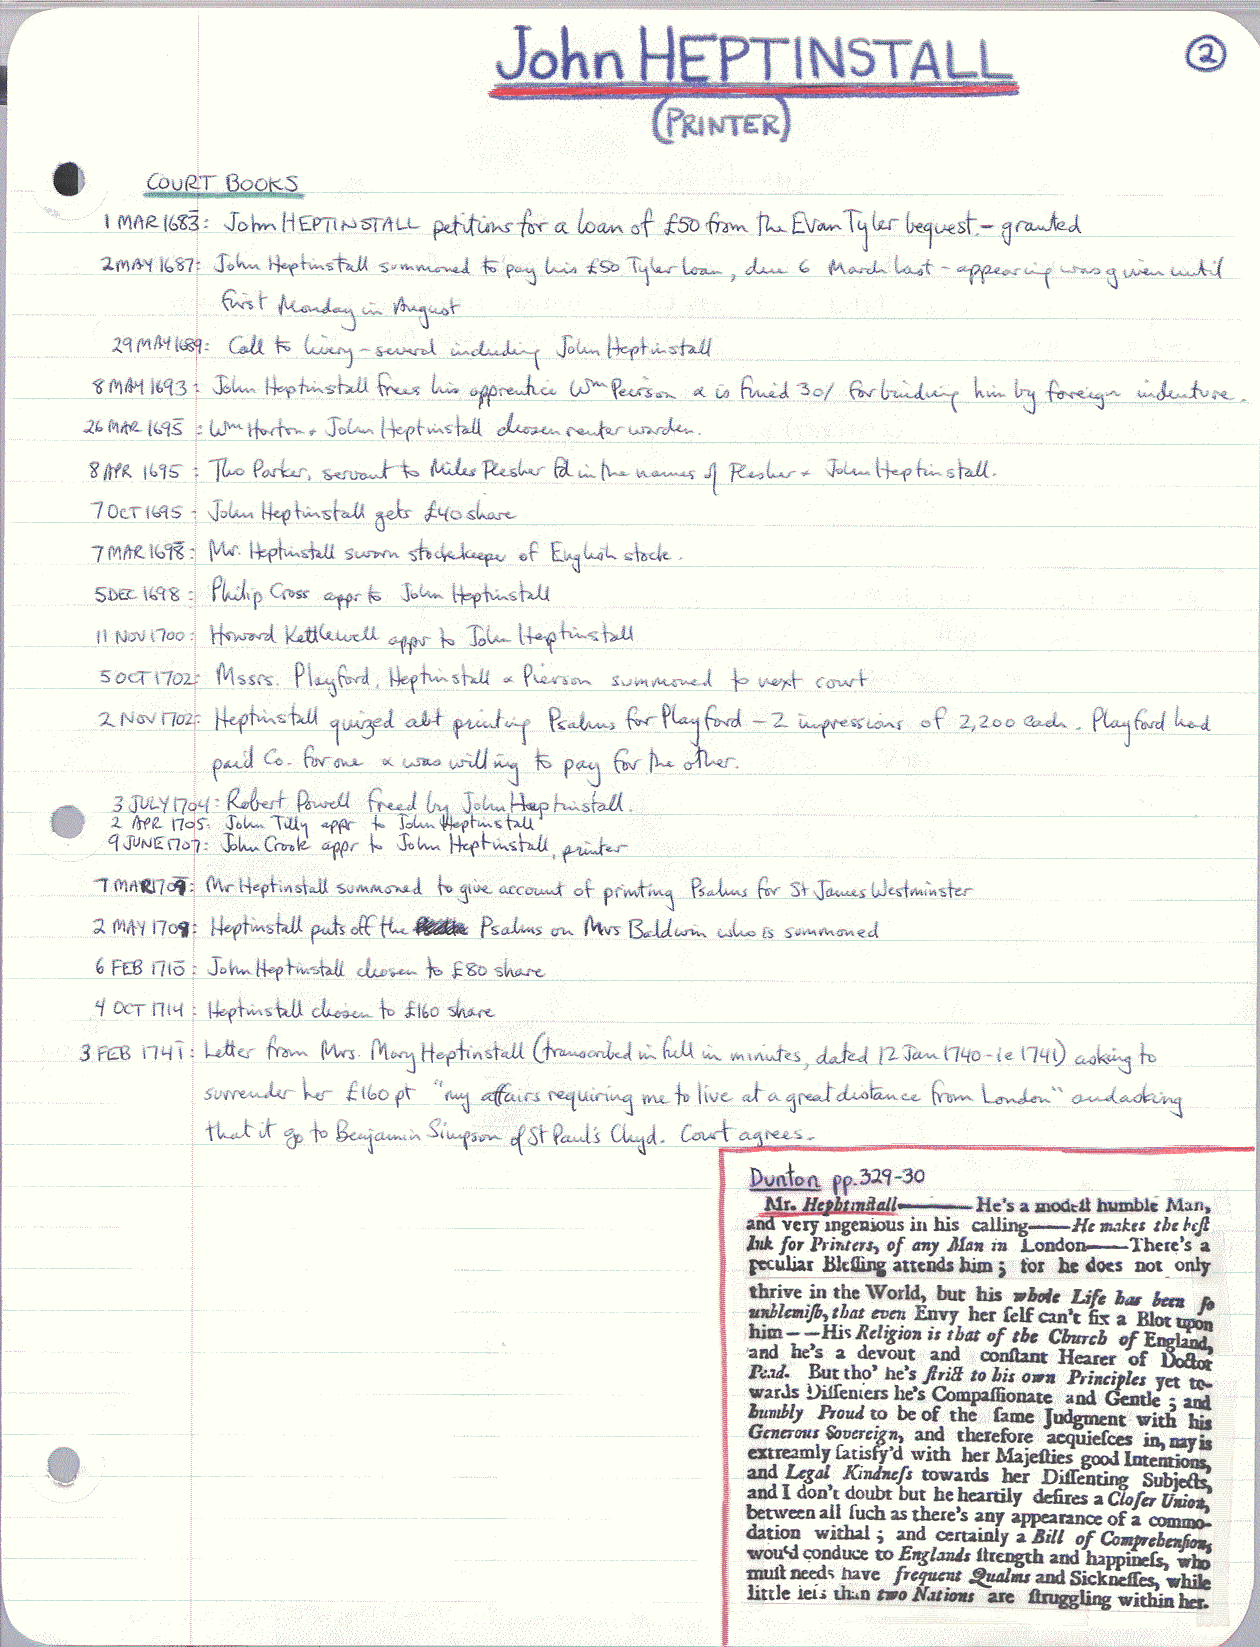 John HEPTINSTALL
②
(PRINTER)
COURT BOOKS
1 MAR 1683: John HEPTINSTALL petitions for a loan of £50 from the Evan Tyler bequest - granted
2 MAY 1687: John Heptinstall summoned to pay his £50 Tyler loan, due 6 March last - appearing was given until
first Monday in August
29 MAY 1689: Call to livery - several including John Heptinstall
8 MAY 1693: John Heptinstall frees his apprentice Wm Peirson & is fined 30/ for binding him by foreign indenture.
26 MAR 1695: Wm Horton & John Heptinstall chosen renter warden.
8 APR 1695: Tho Parker, servant to Miles Flesher fd in the names of Flesher & John Heptinstall.
7 OCT 1695 - John Heptinstall gets £40 share
7 MAR 1698: Mr. Heptinstall sworn stockkeeper of English stock.
5 DEC 1698: Philip Cross appr to John Heptinstall
11 NOV 1700: Howard Kettlewell appr to John Heptinstall
5 OCT 1702: Mssrs. Playford, Heptinstall & Pierson summoned to next court
2 NOV 1702: Heptinstall quized abt printing Psalms for Playford - 2 impressions of 2,200 each. Playford had
paid Co. for one & was willing to pay for the other.
3 JULY 1704: Robert Powell freed by John Heptinstall.
2 APR 1705: John Tilly appr to John Heptinstall
9 JUNE 1707: John Crook appr to John Heptinstall, printer
7 MAR 1709: Mr Heptinstall summoned to give account of printing Psalms for St James Westminster
2 MAY 1709: Heptinstall puts off the Psalms on Mrs Baldwin who is summoned
6 FEB 1710: John Heptinstall chosen to £80 share
4 OCT 1714: Heptinstall chosen to £160 share
3 FEB 1741: Letter from Mrs. Mary Heptinstall (transcribed in full in minutes, dated 12 Jan 1740 - ie 1741) asking to
surrender her £160 pt "my affairs requiring me to live at a great distance from London" and asking
that it go to Benjamin Simpson of St Paul's Chyd. Court agrees.
Dunton pp. 329-30
Mr. Hepbtinſtall—— He's a modeſt humble Man,
and very ingenious in his calling——He makes the beſt
Ink for Printers, of any Man in London——There's a
peculiar Bleſſing attends him; for he does not only
thrive in the World, but his whole Life has been ſo
unblemiſh, that even Envy her ſelf can't fix a Blot upon
him——His Religion is that of the Church of England,
and he's a devout and conſtant Hearer of Doctor
Pead. But tho' he's ſtrict to his own Principles yet to-
wards Diſſenters he's Compaſſionate and Gentle; and
humbly Proud to be of the ſame Judgment with his
Generous Sovereign, and therefore acquieſces in, nay is
extreamly ſatisfy'd with her Majeſties good Intentions,
and Legal Kindneſs towards her Diſſenting Subjects,
and I don't doubt but he heartily deſires a Cloſer Union,
between all ſuch as there's any appearance of a commo-
dation withal; and certainly a Bill of Comprehenſion,
wou'd conduce to Englands ſtrength and happineſs, who
muſt needs have frequent Qualms and Sickneſſes, while
little leſs than two Nations are ſtruggling within her.